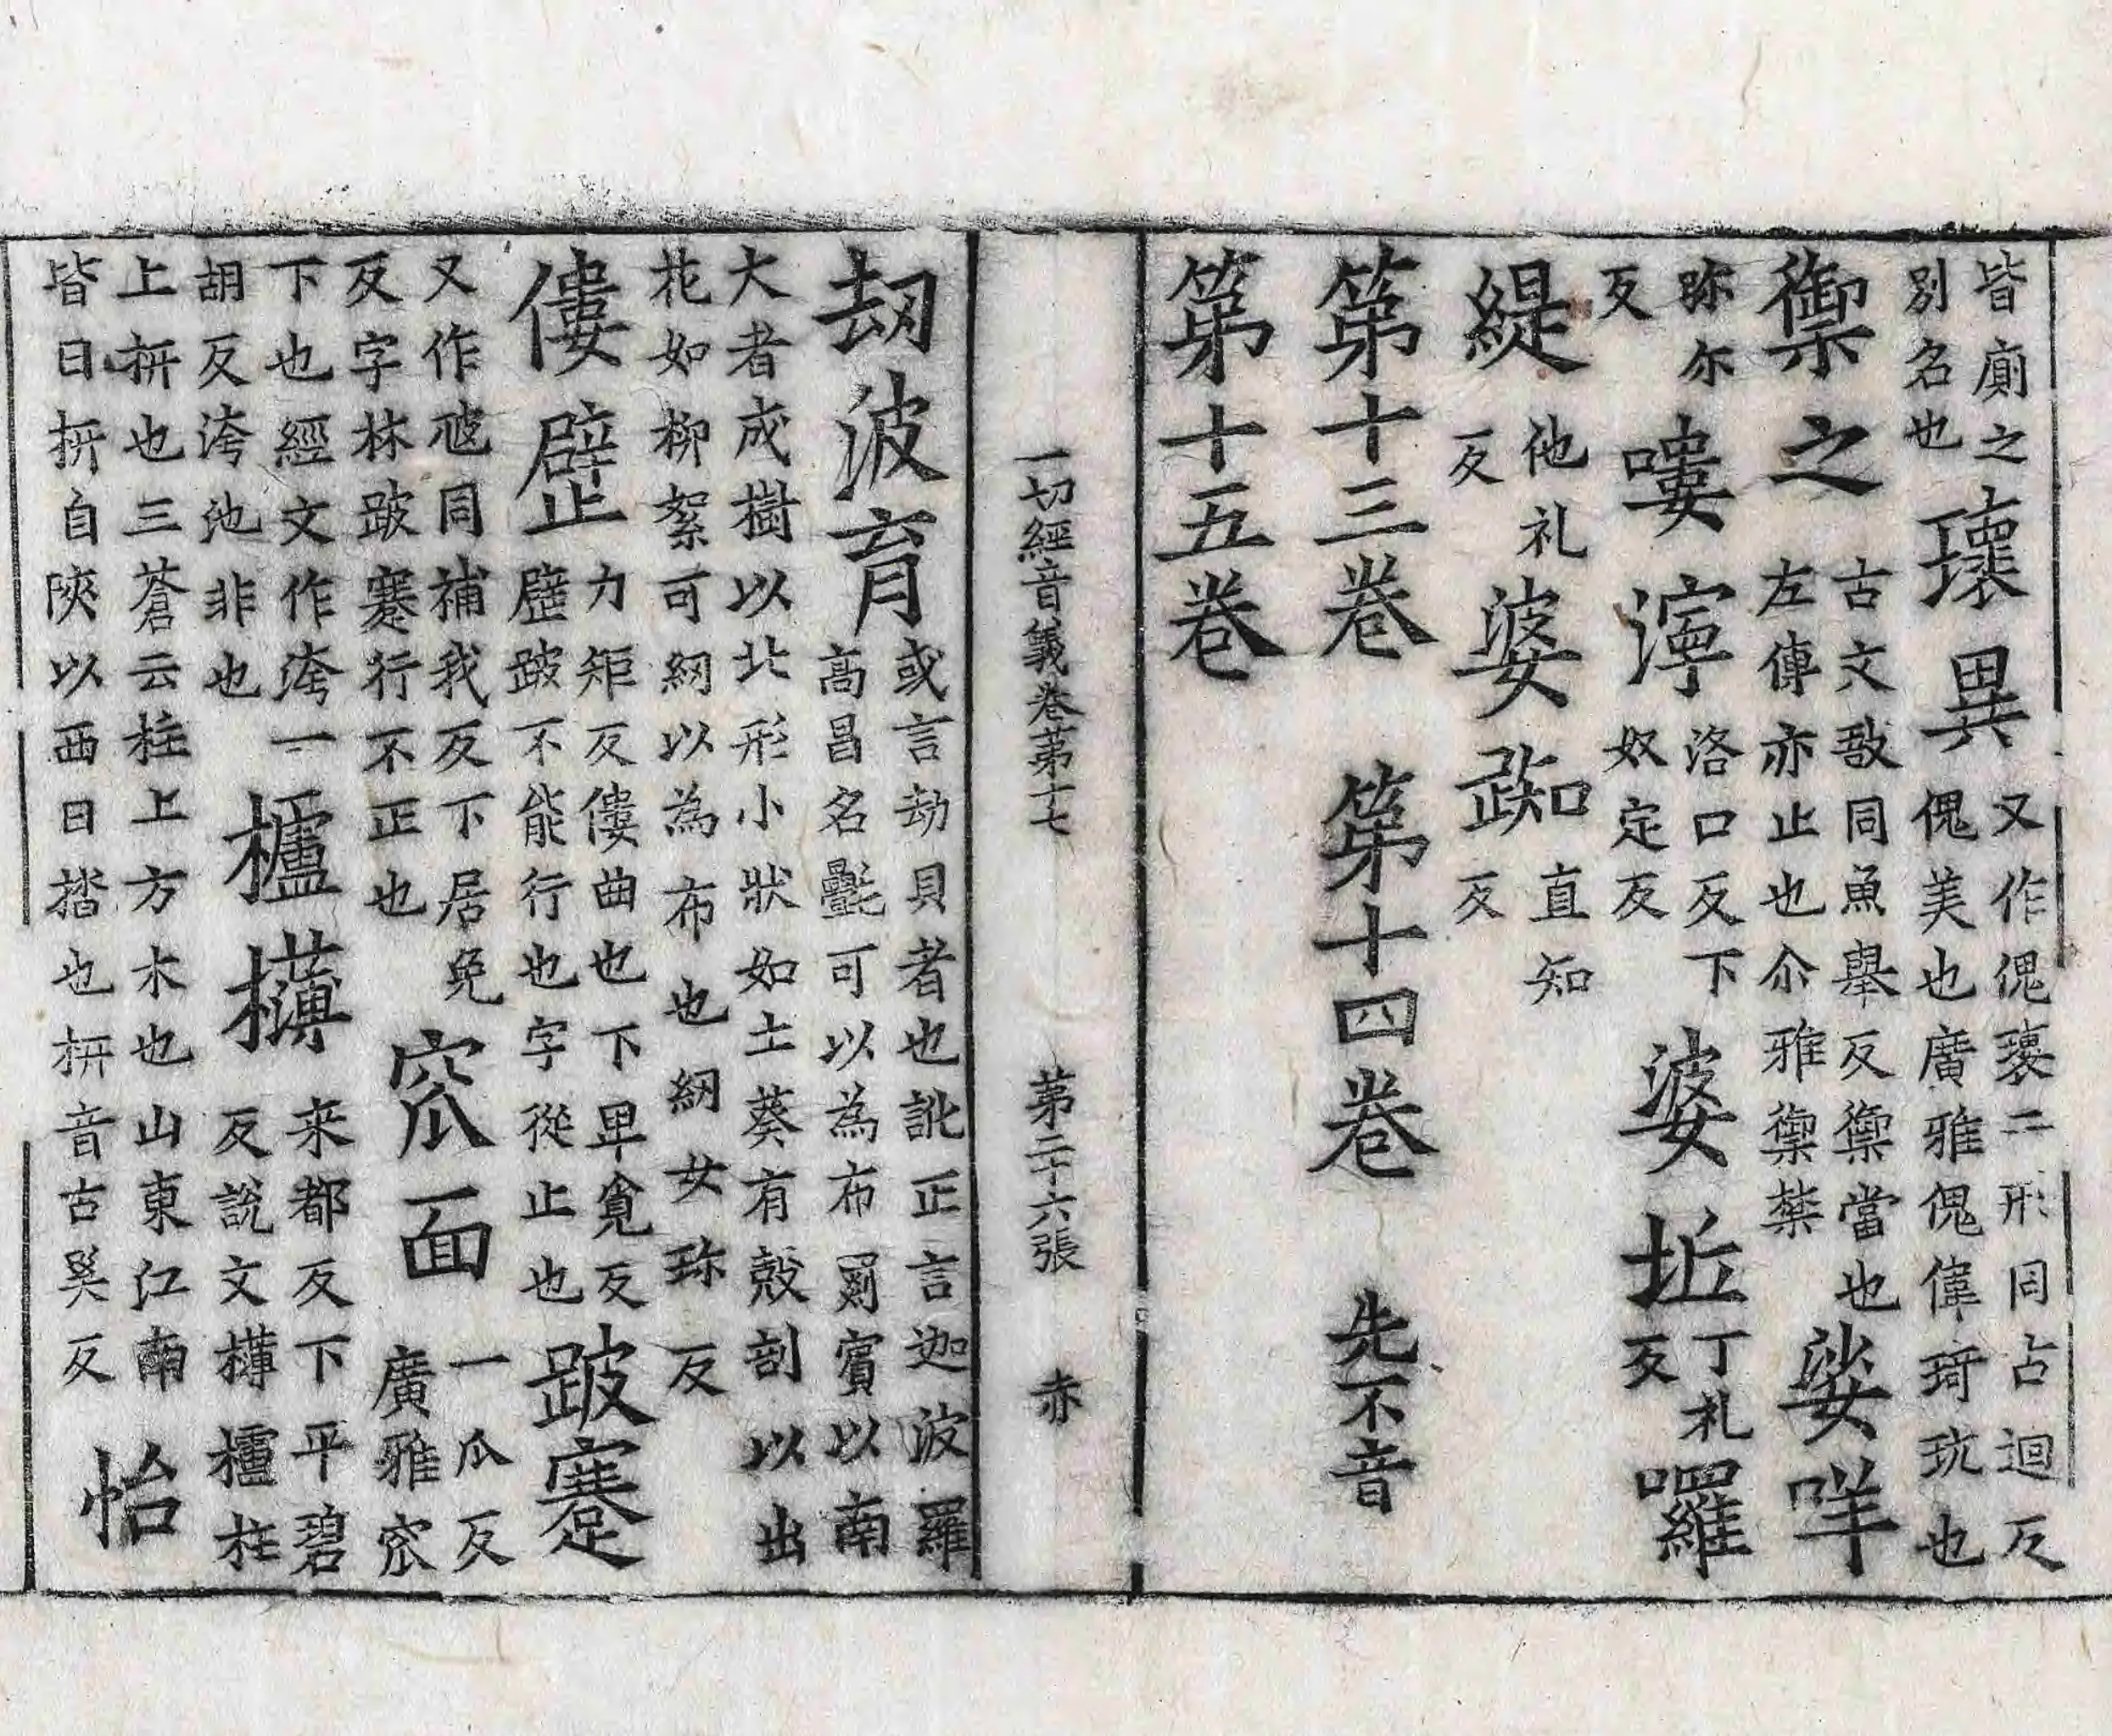 皆廁之別名也瓌異又作傀瓌二形同古迴反傀美也廣雅傀偉琦玩也
禦之古文敔同魚舉反禦當也左傳亦止也尒雅禦禁娑咩
弥尔反嘍濘洛口反下奴定反婆坵丁札反囉
緹他礼反婆𧿒直知反
第十三卷 第十四卷 先不音
第十五卷
一切經音義卷第十七 第二十六張 赤
劫波育或言劫貝者也訛正言迦波羅高昌名㲲可以為布罽賓以南
大者成樹以北形小狀如土葵有殼剖以出花如柳絮可紉以為布也紉女珎反
僂躄力矩反僂曲也下卑覓反躄跛不能行也字從止也跛蹇
又作𡯁同補我反下居免反字林跛蹇行不正也窊面一瓜反廣雅窊
下也經文作洿一胡反洿池非也櫨欂来都反下平碧反說文欂櫨柱
上枅也三蒼云柱上方木也山東江南皆曰枅自陝以西曰㭼也枅音古奚反怡